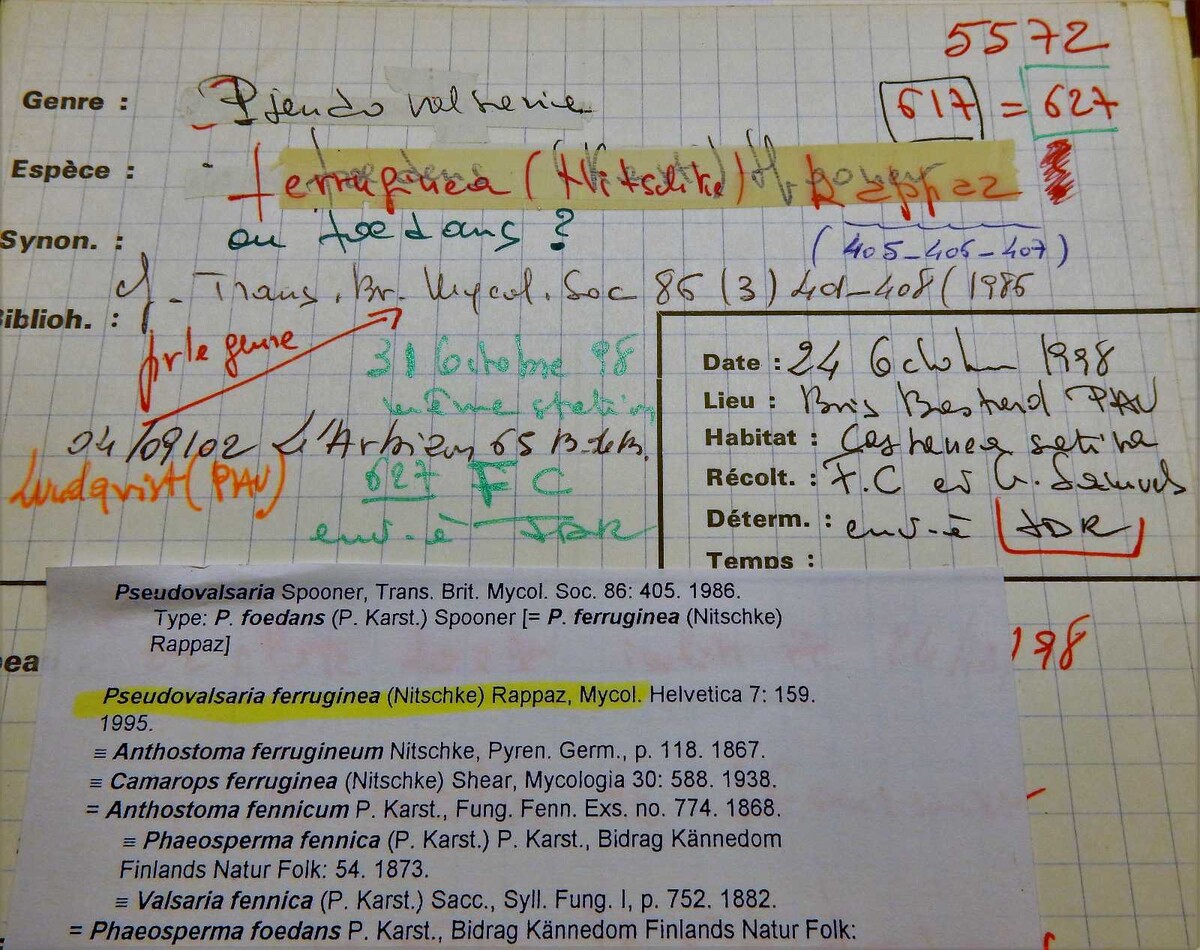 5572
Genre : Pseudovalsaria
617 = 627
Espèce : ferruginea (Nitschke) Rappaz
Synon. : ou foedans ?
(405-406-407)
cf. Trans. Br. Mycol. Soc 86 (3) 401-408 (1986
Biblioh. :
pr le genre
31 Octobre 98
même station
24/09/02 L'Arbizon 65 B. de B.
Lundqvist (PAU)
627 F C
env. à JDR
Date : 24 Octobre 1998
Lieu : Bois Bastard PAU
Habitat : Castanea sativa
Récolt. : F.C et G. Samuels
Déterm. : env. à JDR
Temps :
198
Pseudovalsaria Spooner, Trans. Brit. Mycol. Soc. 86: 405. 1986.
Type: P. foedans (P. Karst.) Spooner [= P. ferruginea (Nitschke)
Rappaz]
Pseudovalsaria ferruginea (Nitschke) Rappaz, Mycol. Helvetica 7: 159.
1995.
≡ Anthostoma ferrugineum Nitschke, Pyren. Germ., p. 118. 1867.
≡ Camarops ferruginea (Nitschke) Shear, Mycologia 30: 588. 1938.
= Anthostoma fennicum P. Karst., Fung. Fenn. Exs. no. 774. 1868.
≡ Phaeosperma fennica (P. Karst.) P. Karst., Bidrag Kännedom
Finlands Natur Folk: 54. 1873.
≡ Valsaria fennica (P. Karst.) Sacc., Syll. Fung. I, p. 752. 1882.
= Phaeosperma foedans P. Karst., Bidrag Kännedom Finlands Natur Folk: